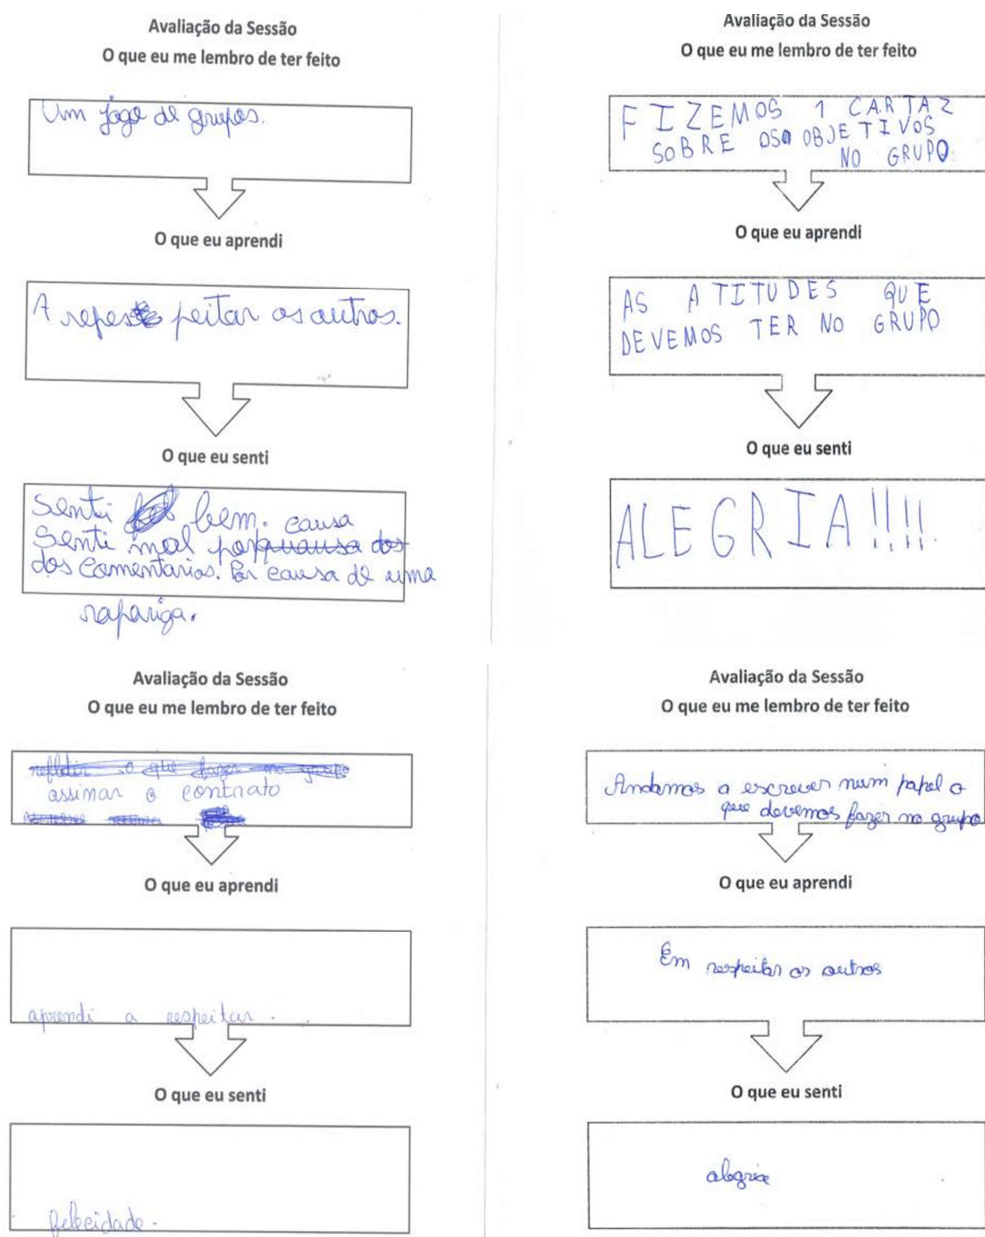 Avaliação da Sessão
O que eu me lembro de ter feito
Um jogo de grupos.
O que eu aprendi
A repes peitar os outros.
O que eu senti
Senti bem. causa
Senti mal por
dos comentarios. Por causa de uma
rapariga.
Avaliação da Sessão
O que eu me lembro de ter feito
FIZEMOS 1 CARTAZ
SOBRE OS OBJETIVOS
NO GRUPO.
O que eu aprendi
AS ATITUDES QUE
DEVEMOS TER NO GRUPO
O que eu senti
ALEGRIA!!!!
Avaliação da Sessão
O que eu me lembro de ter feito
refletir o que fazer no grupo
assinar o contrato
O que eu aprendi
aprendi a respeitar.
O que eu senti
felecidade.
Avaliação da Sessão
O que eu me lembro de ter feito
Andamos a escrever num papel o
que devemos fazer no grupo
O que eu aprendi
Em respeitar os outros
O que eu senti
alegria